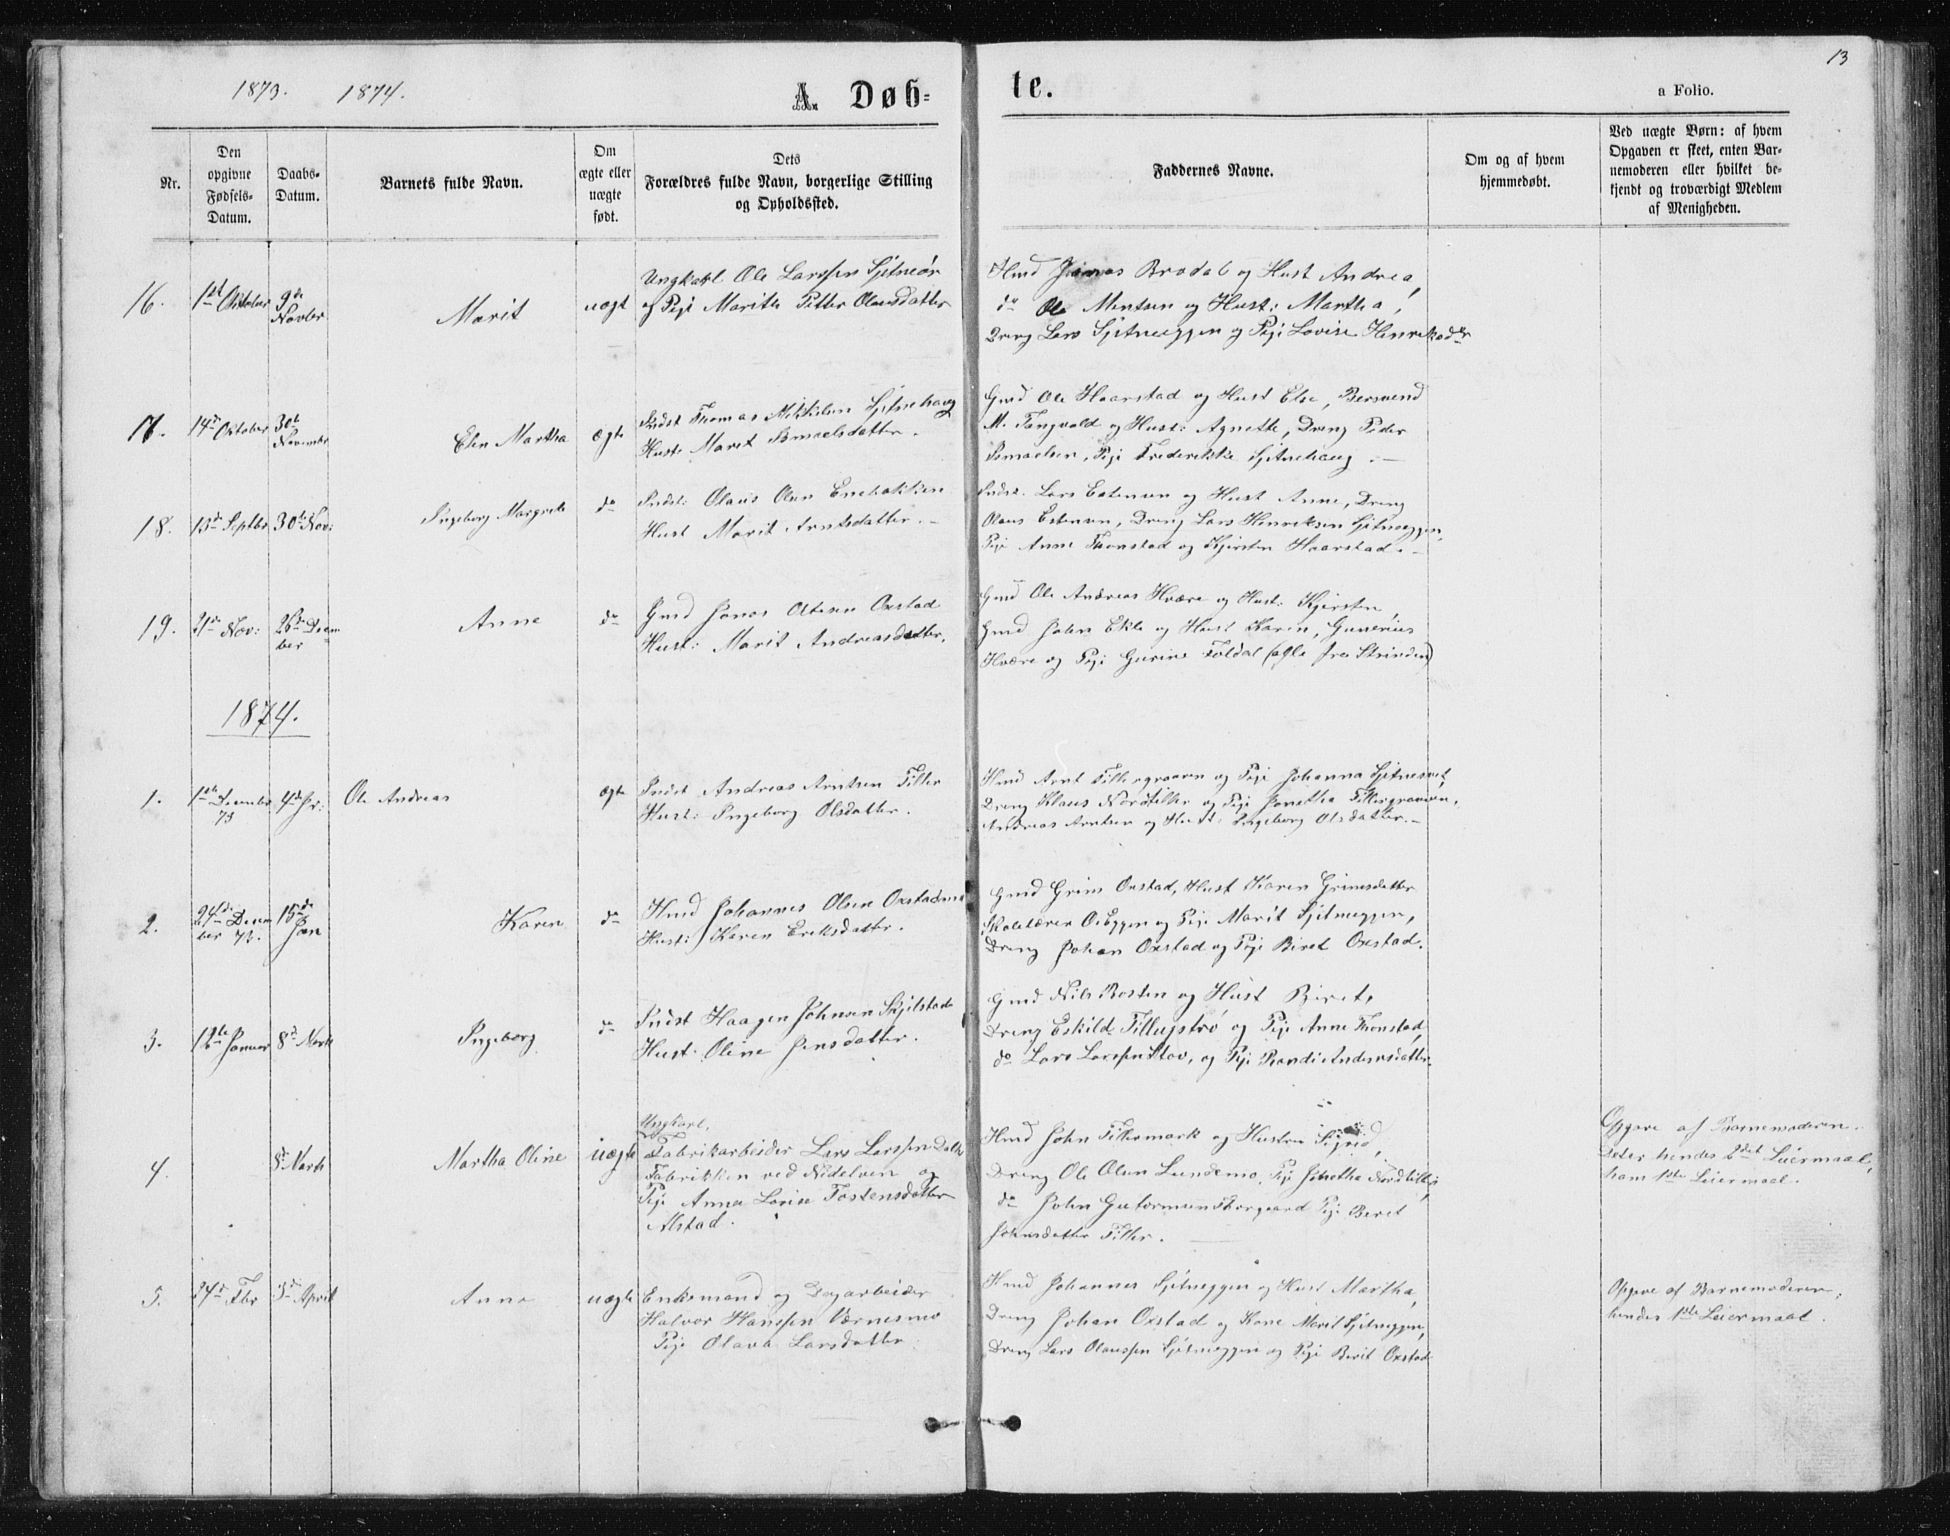 13
1873. 1874.
A. Døb=
te.
a Folio.
Nr.
Den opgivne Fødsels-Datum.
Daabs-Datum.
Barnets fulde Navn.
Om ægte eller uægte født.
Dets Forældres fulde Navn, borgerlige Stilling og Opholdssted.
Faddernes Navne.
Om og af hvem hjemmedøbt.
Ved uægte Børn: af hvem Opgaven er skeet, enten Barnemoderen eller hvilket bekjendt og troværdigt Medlem af Menigheden.
16. 1st Oktober 9de Novbr Marit uægt
Ungkarl Ole Larssen Sjetneør
og Pige Marith Piller Olausdatter
Hmd Jonas Bradal og Hust Andrea,
do Ole Mentsen og Hust: Martha,
Dreng Lars Sjetneeggen og Pige Lovise Henriksdtr
17. 14de Oktober 30te November Elen Martha ægte
Indst Thomas Mikkelsen Sjetnehaug
Hust: Marit Ismaelsdatter.
Gmd Ole Haarstad og Hust Else, Bersvend
M. Tungvold og Hust: Agnette, Dreng Peder
Ismaelsen, Pige Frederikke Sjetnehaug.
18. 13de Septbr 30te Nov: Ingeborg Margrete do
Indst: Olaus Olsen Enebakken
Hust Marit Arntsdatter.
Indst. Lars Estensen og Hust Anne, Dreng
Olaus Estensen, Dreng Lars Henriksen Sjetneeggen,
Pige Anne Tronstad og Kjersten Haarstad.
19. 21de Nov: 26de December Anne do
Gmd Jonas Olesen Oxstad
Hust: Marit Andreasdatter.
Gmd Ole Andreas Hvære og Hust: Kjersten,
Gmd John Ekle og Hust Karen, Gunerius
Hvære og Pige Gurine Foldal (alle fra Strinden)
1874.
1. 1ste December 73 4de Jr: Ole Andreas ægte
Indst Andreas Arntsen Tiller
Hust: Ingeborg Olsdatter.
Hmd Arnt Tillergraaen og Pige Johanna Sjetnesvet,
Dreng Klaus Nordtiller og Pige Jonetha Tillergraaen,
Andreas Arntsen og Hust: Ingeborg Olsdatter.
2. 24de December 73. 15de Jan Karen do
Hmd Johannes Olsen Oxstad
Hust: Karen Eriksdatter.
Gmd Grim Oxstad, Hust Karen Grimsdatter
Skolelærer O. Eggen og Pige Marit Sjetneeggen,
Dreng Johan Oxstad og Pige Beret Oxstad.
3. 12te Januar 8de Marts Ingeborg do
Indst Haagen Johnsen Skjelstad
Hust: Oline Jensdatter.
Gmd Nils Rosten og Hust Beret,
Dreng Eskild og Pige Anne Tronstad,
do Lars Larssen og Pige Randi Andersdatter.
4. 8de Marts Martha Oline uægte
Ungkarl,
Fabrikarbeider Lars Larssen
Fabrikken ved Nidelven og
Pige Anna Lovise Tostensdatter
Alstad.
Hmd John Tillermark og Hustru Sigrid,
Dreng Ole Olsen Lundemo, Pige Jonetha Nordtiller,
do John Guttormsen Pige Beret
Johnsdatter Tiller.
Opgave af Barnemoderen.
Dette hendes 2det Leiermaal,
ham 1ste Leiermaal.
5. 24de Fbr 3de April Anne uægte
Enkemand og Dagarbeider
Halvor Hanssen Værnesmo
Pige Olava Larsdatter.
Hmd Johannes Sjetneeggen og Hust Martha,
Dreng Johan Oxstad og Kone Marit Sjetneeggen,
Dreng Lars Olaussen Sjetneeggen og Pige Berit Oxstad
Opgave af Barnemoderen,
hendes 1ste Leiermaal.